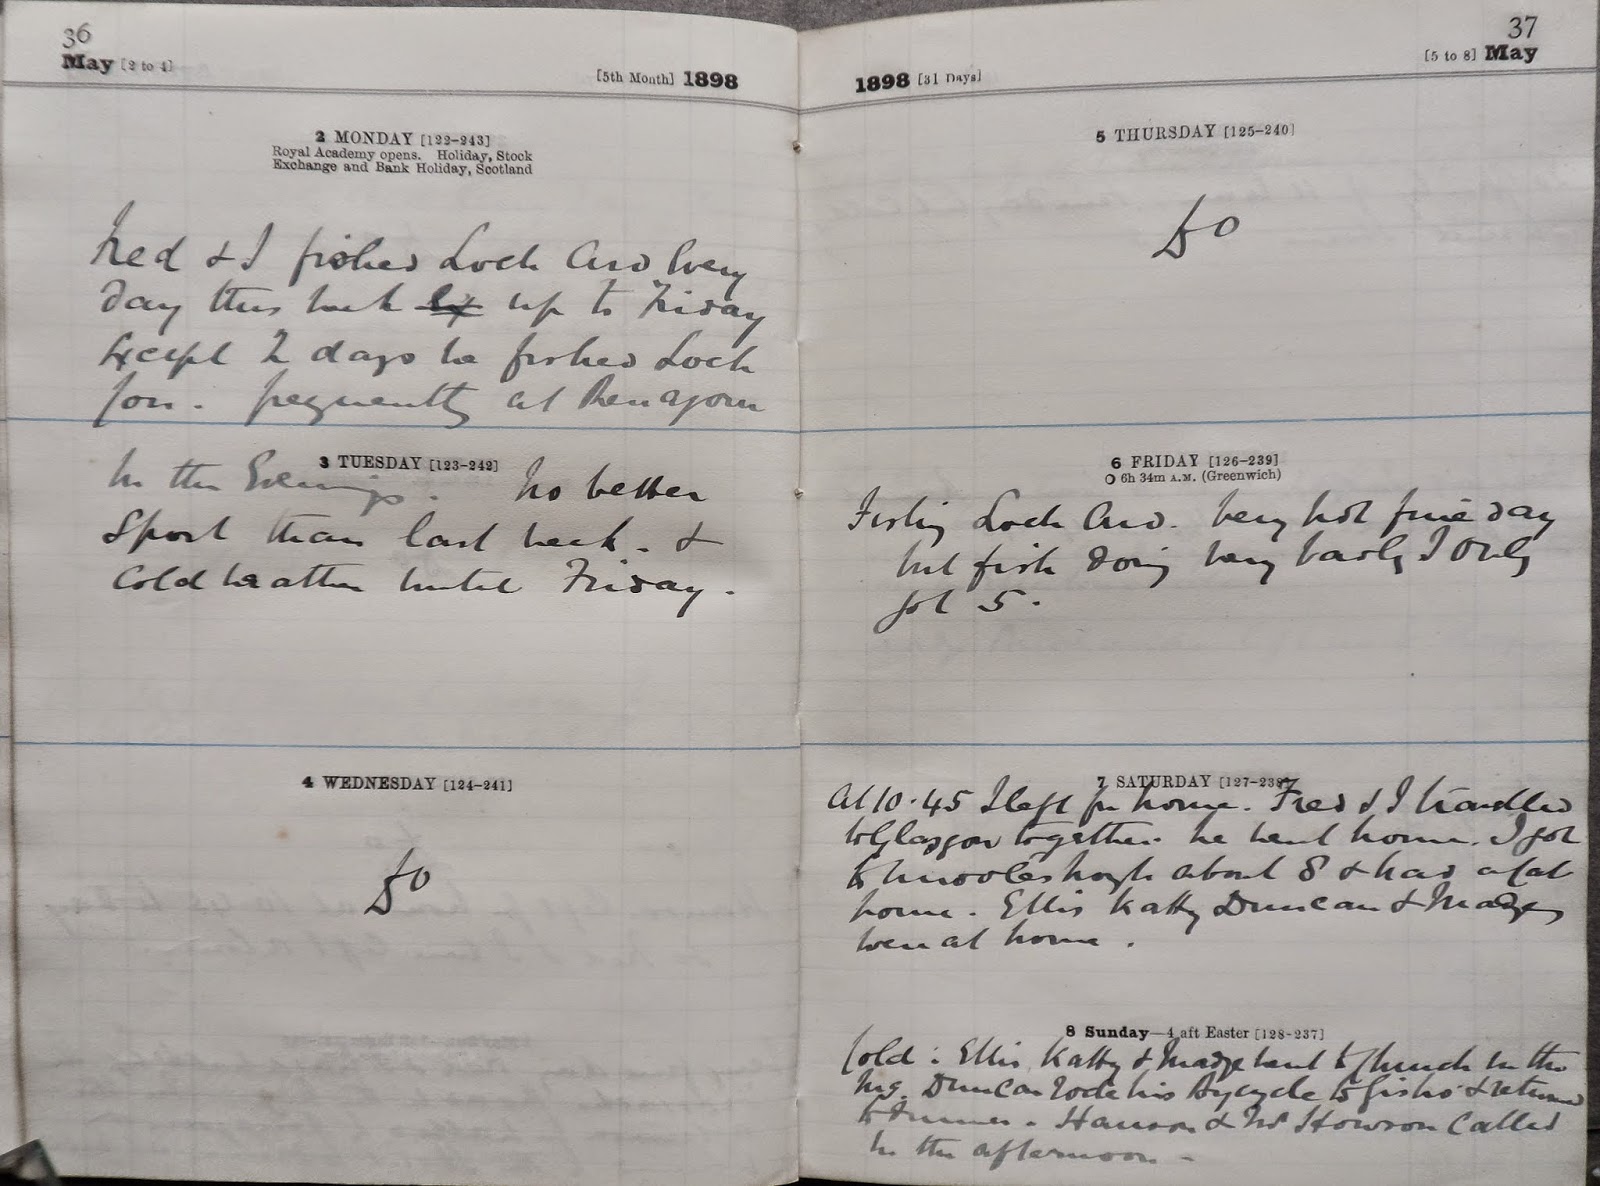 36
May [2 to 4]
[5th Month] 1898
2 MONDAY [122-243]
Royal Academy opens. Holiday, Stock
Exchange and Bank Holiday, Scotland
Fred & I fished Loch Ard Every
day this week up to Friday
Except 2 days he fished Loch
Con. frequently at
3 TUESDAY [123-242]
In the Evenings. No better
Sport than last week. &
Cold weather until Friday.
4 WEDNESDAY [124-241]
Do
37
[5 to 8] May
1898 [31 Days]
5 THURSDAY [125-240]
Do
6 FRIDAY [126-239]
6h 34m A.M. (Greenwich)
Fishing Loch Ard. Very hot fine day
but fish doing very badly I only
got 5.
7 SATURDAY [127-238]
At 10.45 I left for home. Fred & I travelled
to Glasgow together. he went home. I got
to Middlesbrough about 8 & had a Cab
home. Ellis Katty Duncan & Madge
were at home.
8 Sunday—4 aft Easter [128-237]
Cold. Ellis Katty & Madge went to Church in the
Mg. Duncan rode his Bycycle to & returned
to dinner. & Called
In the afternoon -